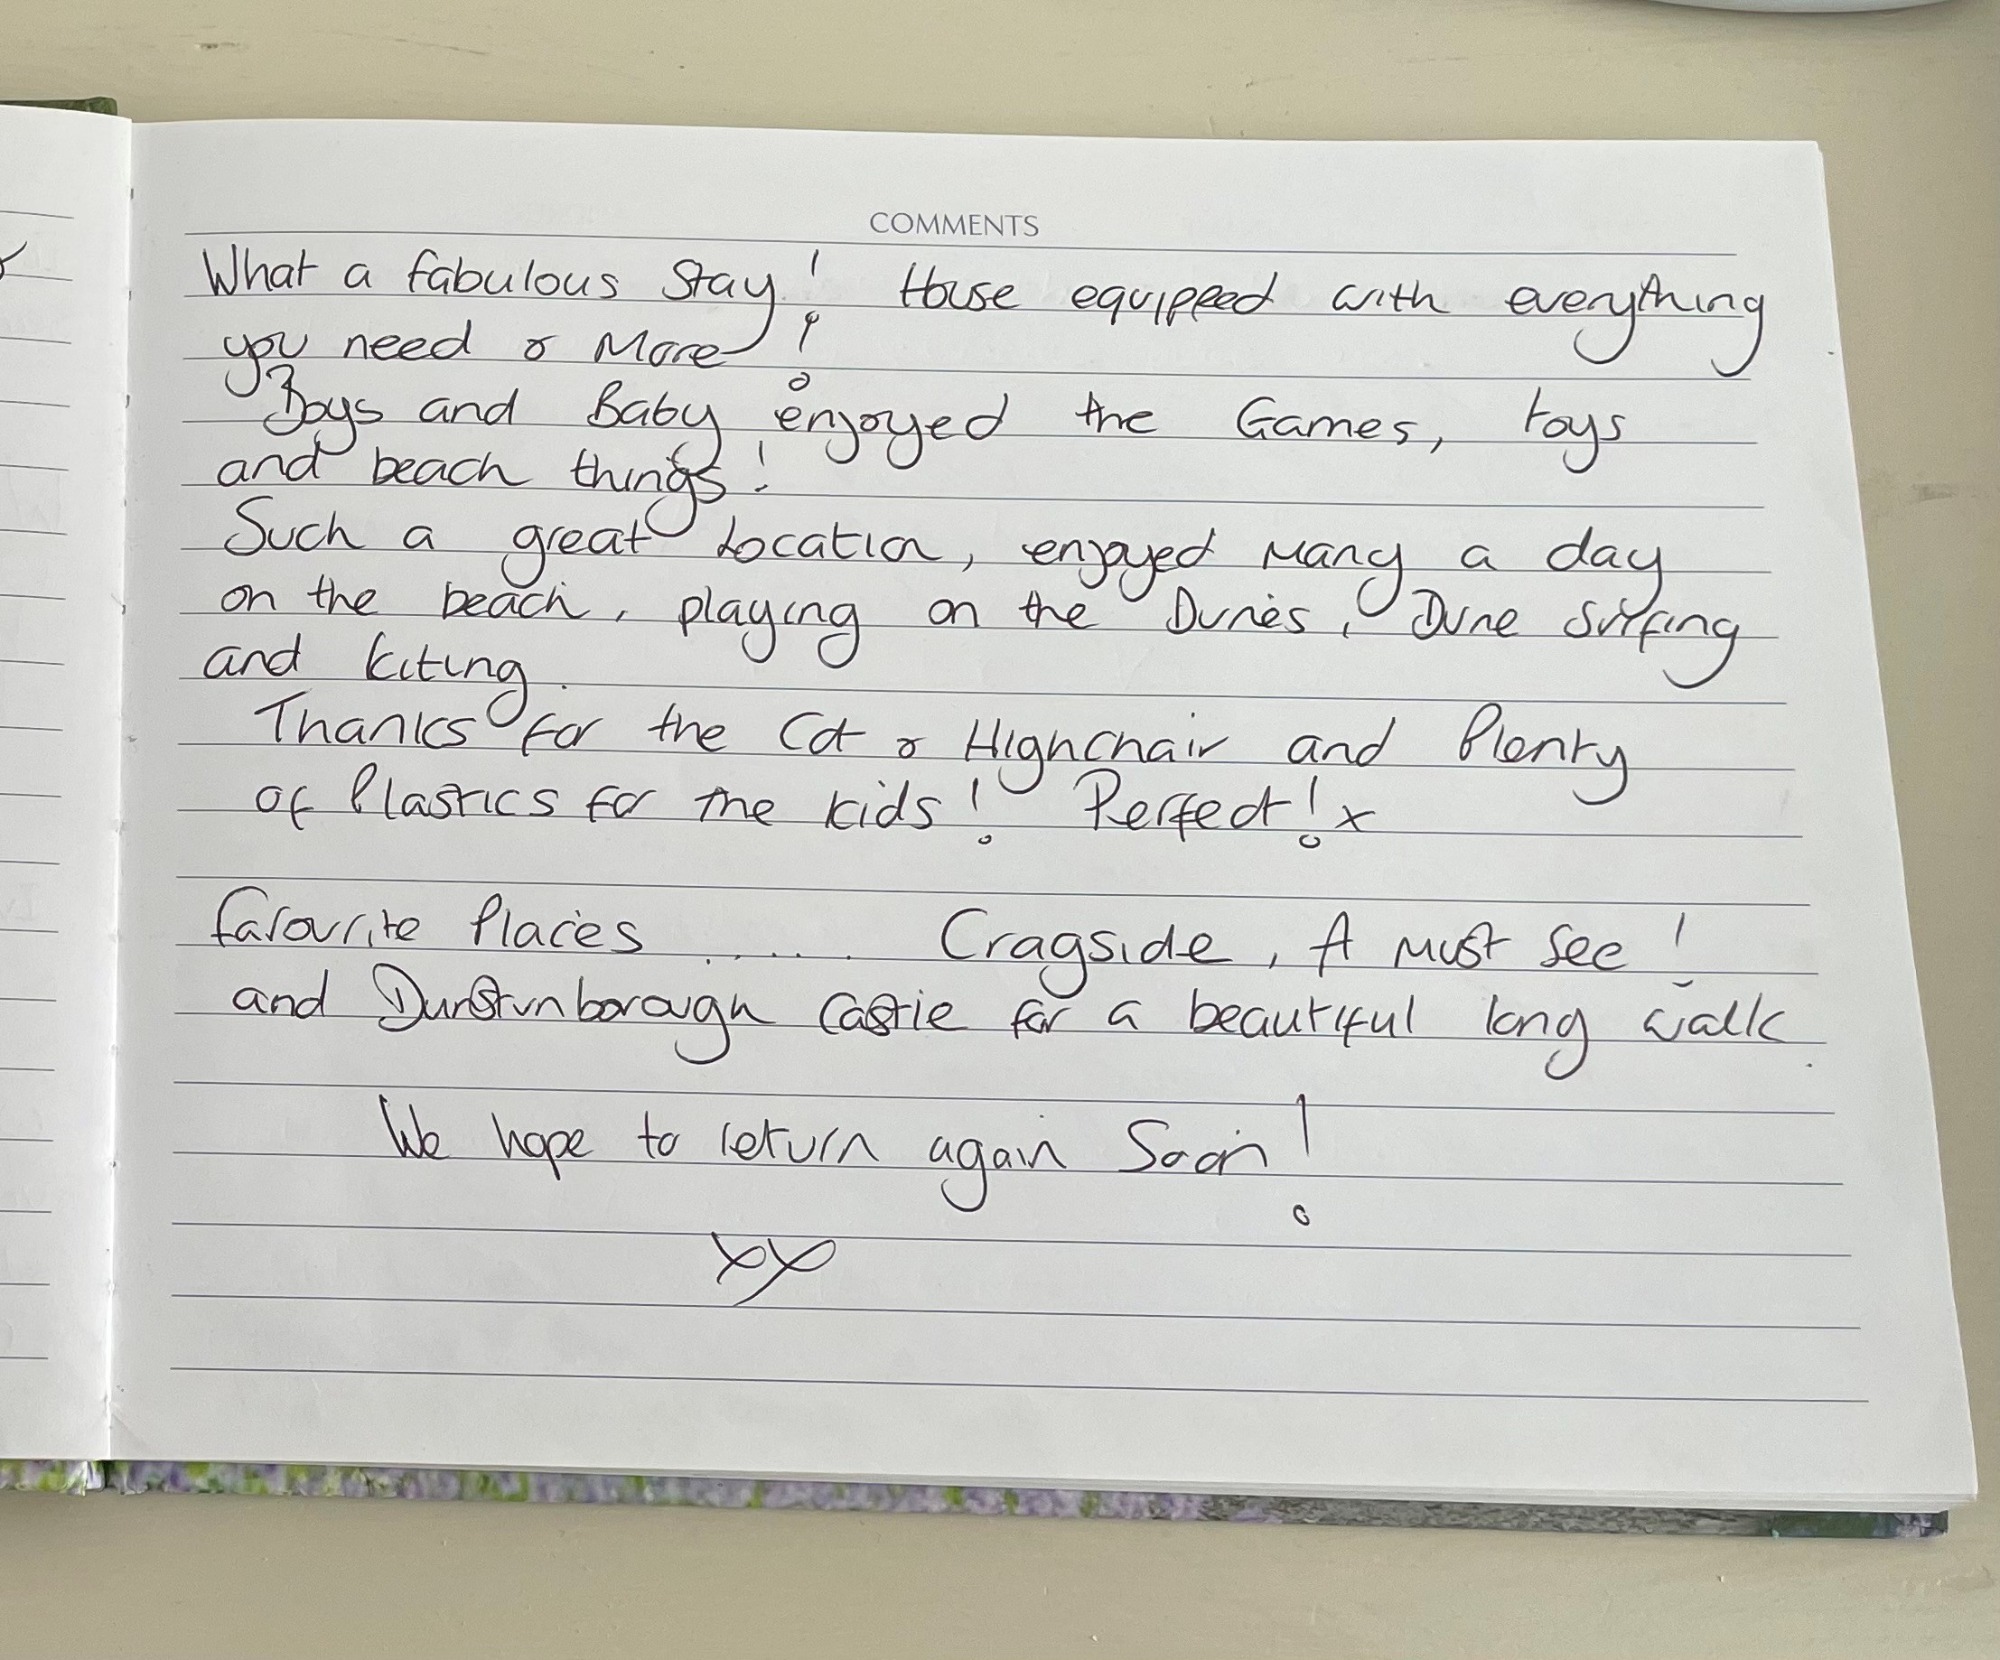 COMMENTS
What a fabulous Stay! House equipped with everything
you need & More!
Boys and Baby enjoyed the Games, toys
and beach things!
Such a great Location, enjoyed Many a day
on the beach, playing on the Dunes, Dune Surfing
and kiting.
Thanks for the Cot & Highchair and Plenty
of Plastics for the kids! Perfect! x
favourite Places ..... Cragside, A Must See!
and Dunstunborough Castle for a beautiful long walk.
We hope to return again Soon!
xx